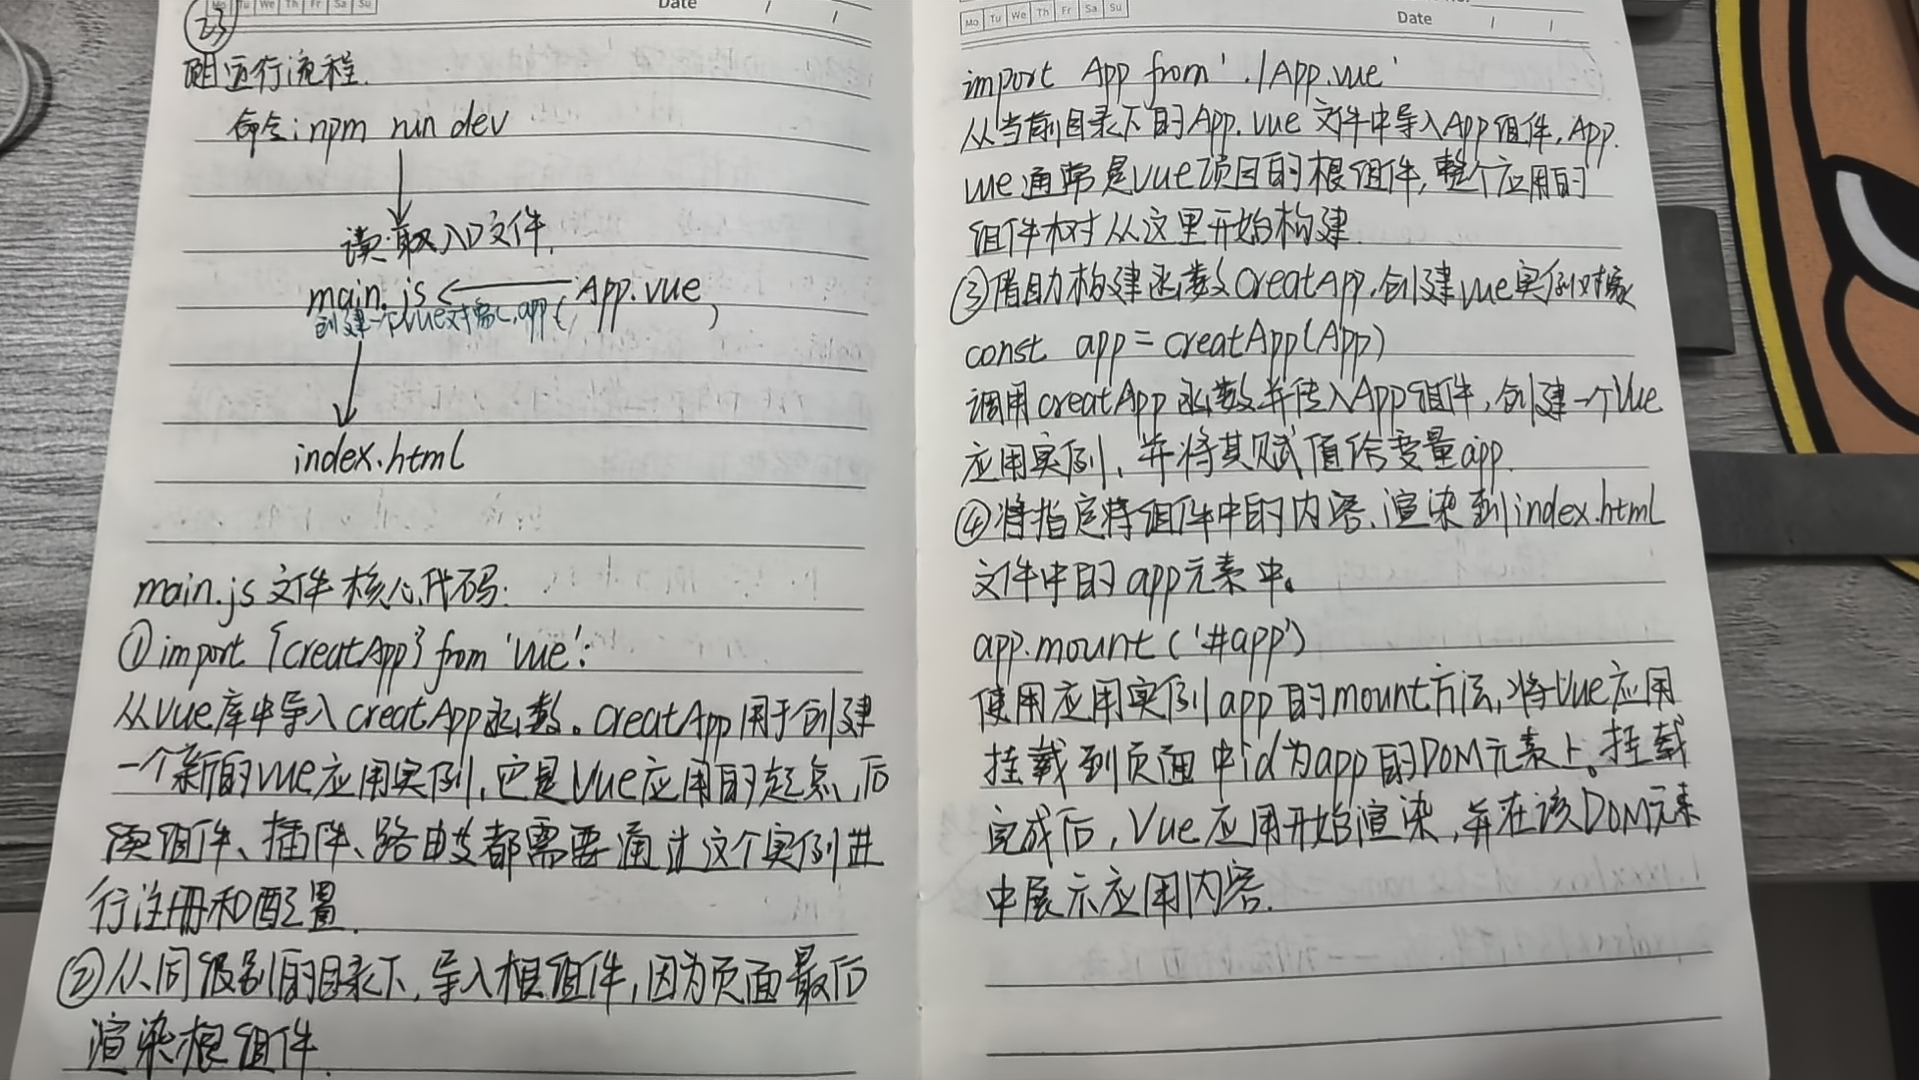 23
Mo Tu We Th Fr Sa Su
Date / /
运行流程.
命令:npm run dev
读取入口文件.
main.js ← App.vue
创建一个vue对象
index.html
main.js文件核心代码:
①import {creatApp} from 'vue':
从vue库中导入creatApp函数。creatApp用于创建
一个新的vue应用实例,它是Vue应用的起点,后
续组件、插件、路由或都需要通过这个实例进
行注册和配置.
②从同级别的目录下,导入根组件,因为页面最后
渲染根组件.
Mo Tu We Th Fr Sa Su
Date / /
import App from './App.vue'
从当前目录下的App.vue文件中导入App组件,App.
vue通常是vue项目的根组件,整个应用的
组件树从这里开始构建.
③借助构建函数CreatApp,创建vue实例对象
const app = creatApp(App)
调用creatApp函数并传入App组件,创建一个Vue
应用实例,并将其赋值给变量app.
④将指定将组件中的内容、渲染到index.html
文件中的app元素中。
app.mount('#app')
使用应用实例app的mount方法,将Vue应用
挂载到页面中id为app的DOM元素上。挂载
完成后,Vue应用开始渲染,并在该DOM元素
中展示应用内容.